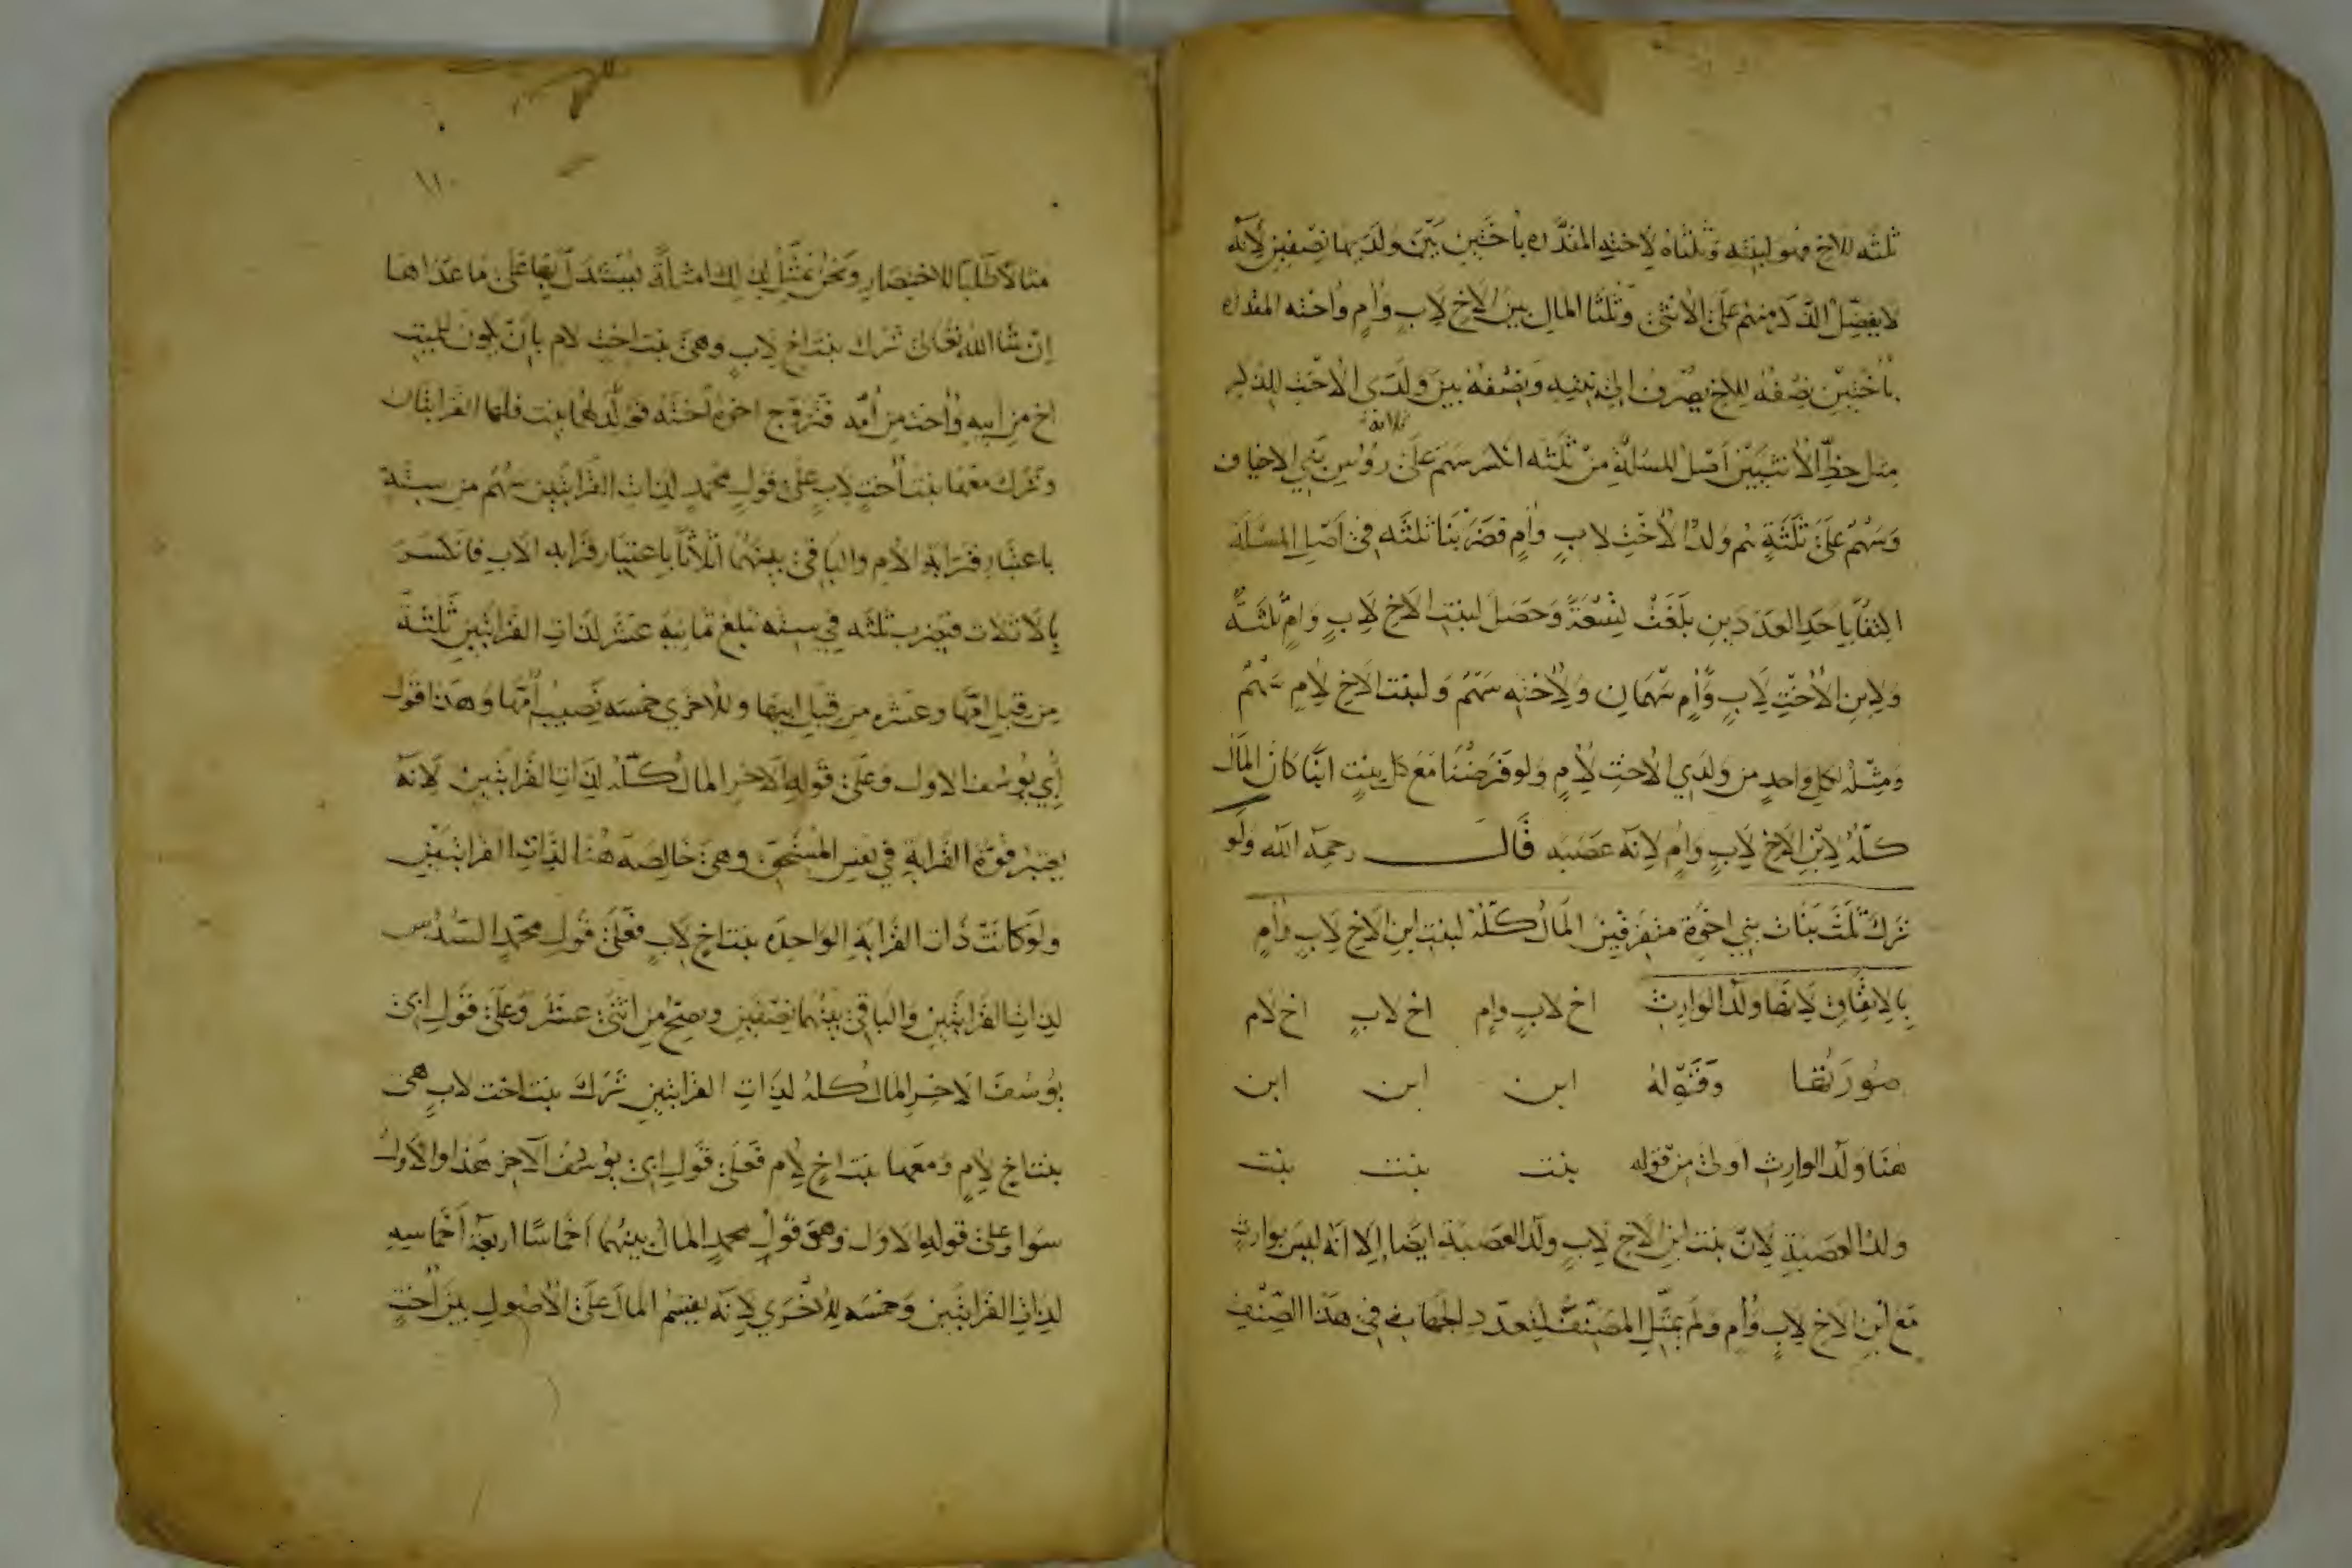 ثلثه للاخ وهو لبنته وثلثاه لاخته المقدره باختين بين ولديها نصفين لانه
لا يفضل الذكر منهم على الانثى وثلثا المال بين الاخ لاب وام واخته المقدره
باختين نصفه للاخ يصرف الى بنته ونصفه بين ولدى الاخت للذكر
مثل حظ الانثيين اصل المسئلة من ثلثه انكسر سهم على رؤس بني الاخياف
ثلاثة
وسهم على ثلثة هم ولدا الاخت لاب وام فضربنا ثلثه في اصل المسئلة
اكتفا باحد العددين بلغت تسعة وحصل لبنت الاخ لاب وام ثلثة
ولابن الاخت لاب وام سهمان ولاخته سهم ولبنت الاخ لام سهم
ومثله لكل واحد من ولدي الاخت لام ولو فرضنا مع كل بنت ابنا كان المال
كله لابن الاخ لاب وام لانه عصبه قال رحمه الله ولو
ترك ثلث بنات بني اخوة متفرقين المال كله لبنت ابن الاخ لاب وام
بالاتفاق لانها ولد الوارث اخ لاب وام اخ لاب اخ لام
صورتها وقوله ابن ابن ابن
هنا ولد الوارث اولى من قوله بنت بنت بنت
ولد العصبة لان بنت ابن الاخ لاب ولد العصبة ايضا الا انه ليس بوارث
مع ابن الاخ لاب وام ولم يمثل المصنف لتعدد الجهات في هذا الصنف
١١٠
مثالا طلبا للاختصار ونحن نمثل لذلك امثلة ليستدل بها على ما عداها
ان شا الله تعالى ترك بنت اخ لاب وهي بنت اخت لام بان يكون للميت
اخ من ابيه واخت من امه فتزوج اخوه اخته فولد لهما بنت فلها القرابتان
وترك معها بنت اخت لاب على قول محمد لذات القرابتين سهم من ستة
باعتبار قرابة الام والباقي بينهما اثلاثا باعتبار قرابه الاب فانكسر
بالاثلاث فيضرب ثلثه في سته تبلغ ثمانيه عشر لذات القرابتين ثلثة
من قبل امها وعشره من قبل ابيها وللاخري خمسه نصيب امها وهذا قول
ابي يوسف الاول وعلى قوله الاخر المال كله لذات القرابتين لانه
يعتبر قوة القرابة في نفس المستحق وهي خالصه هنا لذات القرابتين
ولو كانت ذات القرابة الواحده بنت اخ لاب فعلى قول محمد السدس
لذات القرابتين والباقي بينهما نصفين وتصح من اثنى عشر وعلى قول ابي
يوسف الاخر المال كله لذات القرابتين ترك بنت اخت لاب هي
بنت اخ لام ومعها بنت اخ لام فعلى قول ابي يوسف الاخر هذا والاول
سوا وعلى قوله الاول وهو قول محمد المال بينهما اخماسا اربعة اخماسه
لذات القرابتين وخمسه للاخري لانه يقسم المال على الاصول بين اخت